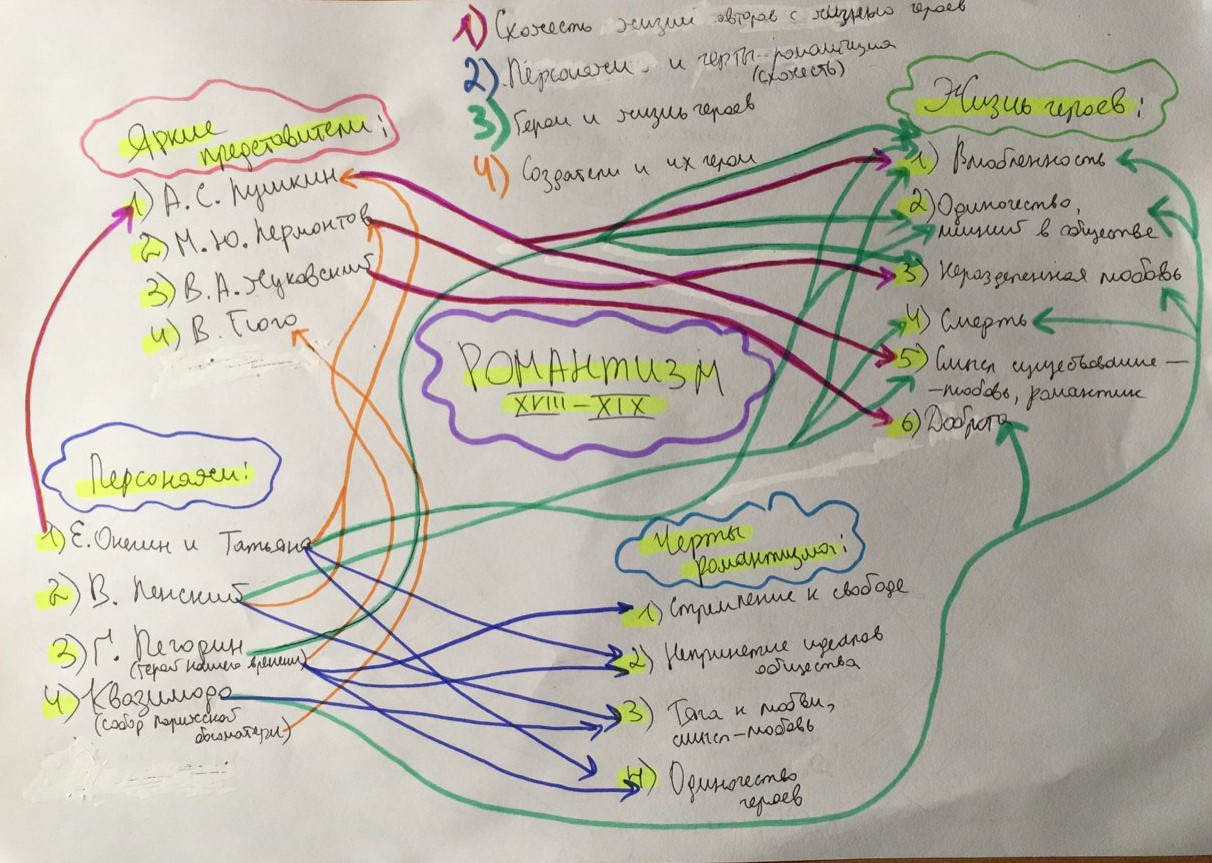 1) Схожесть жизни авторов с жизнью героев
2) Персонажи и черты романтизма
(схожесть)
3) Герои и жизнь героев
4) Создатели и их герои
Яркие
представители:
1) А.С. Пушкин
2) М.Ю. Лермонтов
3) В.А. Жуковский
4) В. Гюго
РОМАНТИЗМ
XVIII – XIX
Жизнь героев:
1) Влюбленность
2) Одиночество,
лишний в обществе
3) Неразделенная любовь
4) Смерть
5) Смысл существование –
-любовь, романтик
6) Доброта
Персонажи:
1) Е. Онегин и Татьяна
2) В. Ленский
3) Г. Печорин
(герой нашего времени)
4) Квазимодо
(собор парижской
богоматери)
Черты
романтизма:
1) Стремление к свободе
2) Непринятие идеалов
общества
3) Тяга к любви,
смысл-любовь
4) Одиночество
героев